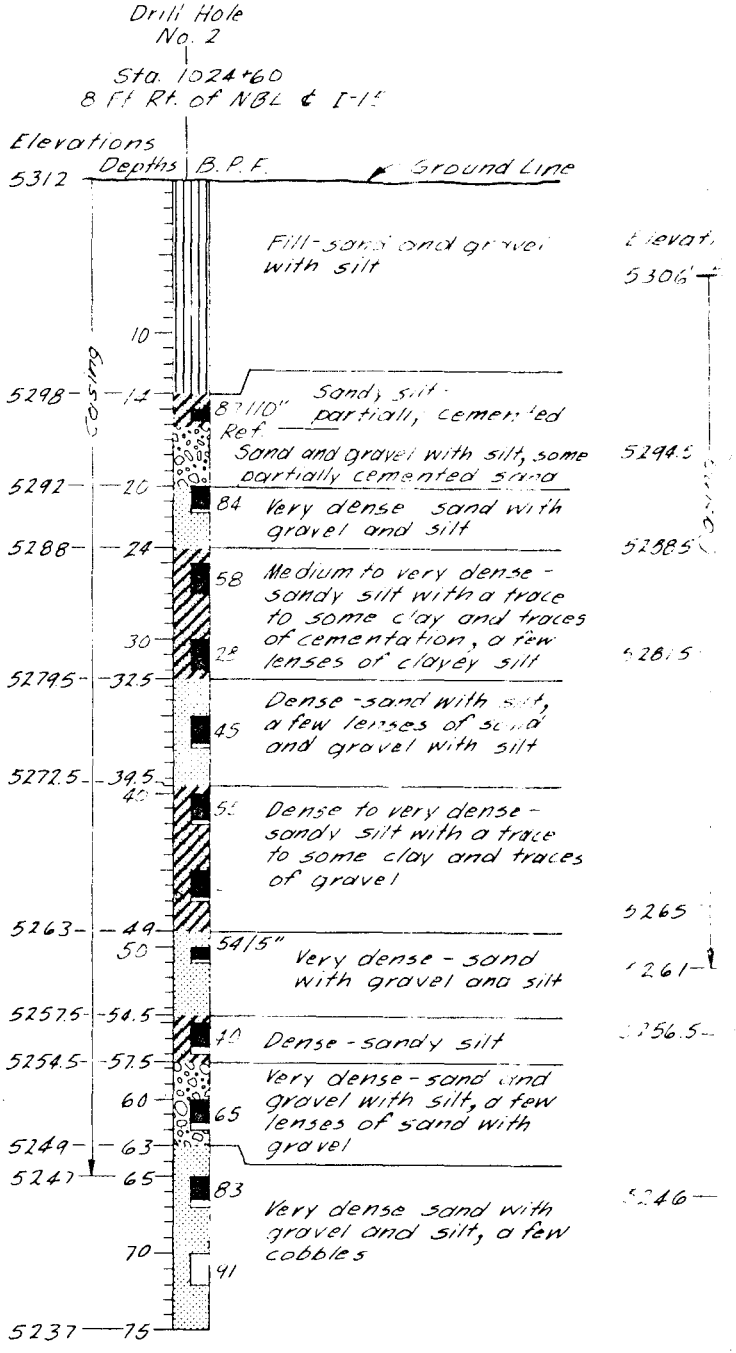 Drill Hole
No. 2
Sta. 1024+60
8 Ft Rt. of NBL ℄ I-15
Elevations
Depths B.P.F.
Ground Line
5312
Fill-sand and gravel
with silt
5306
10
Casing
5298 14
Sandy silt-
partially cemented
87/10"
Ref.
Sand and gravel with silt, some
partially cemented sand
5294.5
5292 20
84
Very dense sand with
gravel and silt
5288 24
5288.5
58
Medium to very dense-
sandy silt with a trace
to some clay and traces
of cementation, a few
lenses of clayey silt
30
28
5281.5
5279.5 32.5
Dense-sand with silt,
a few lenses of sand
and gravel with silt
45
5272.5 39.5
40
55
Dense to very dense-
sandy silt with a trace
to some clay and traces
of gravel
5265
5263 49
50
54/5"
Very dense-sand
with gravel and silt
5261
5257.5 54.5
40
Dense-sandy silt
5256.5
5254.5 57.5
Very dense-sand and
gravel with silt, a few
lenses of sand with
gravel
60
65
5249 63
5247 65
83
5246
Very dense sand with
gravel and silt, a few
cobbles
70
91
5237 75